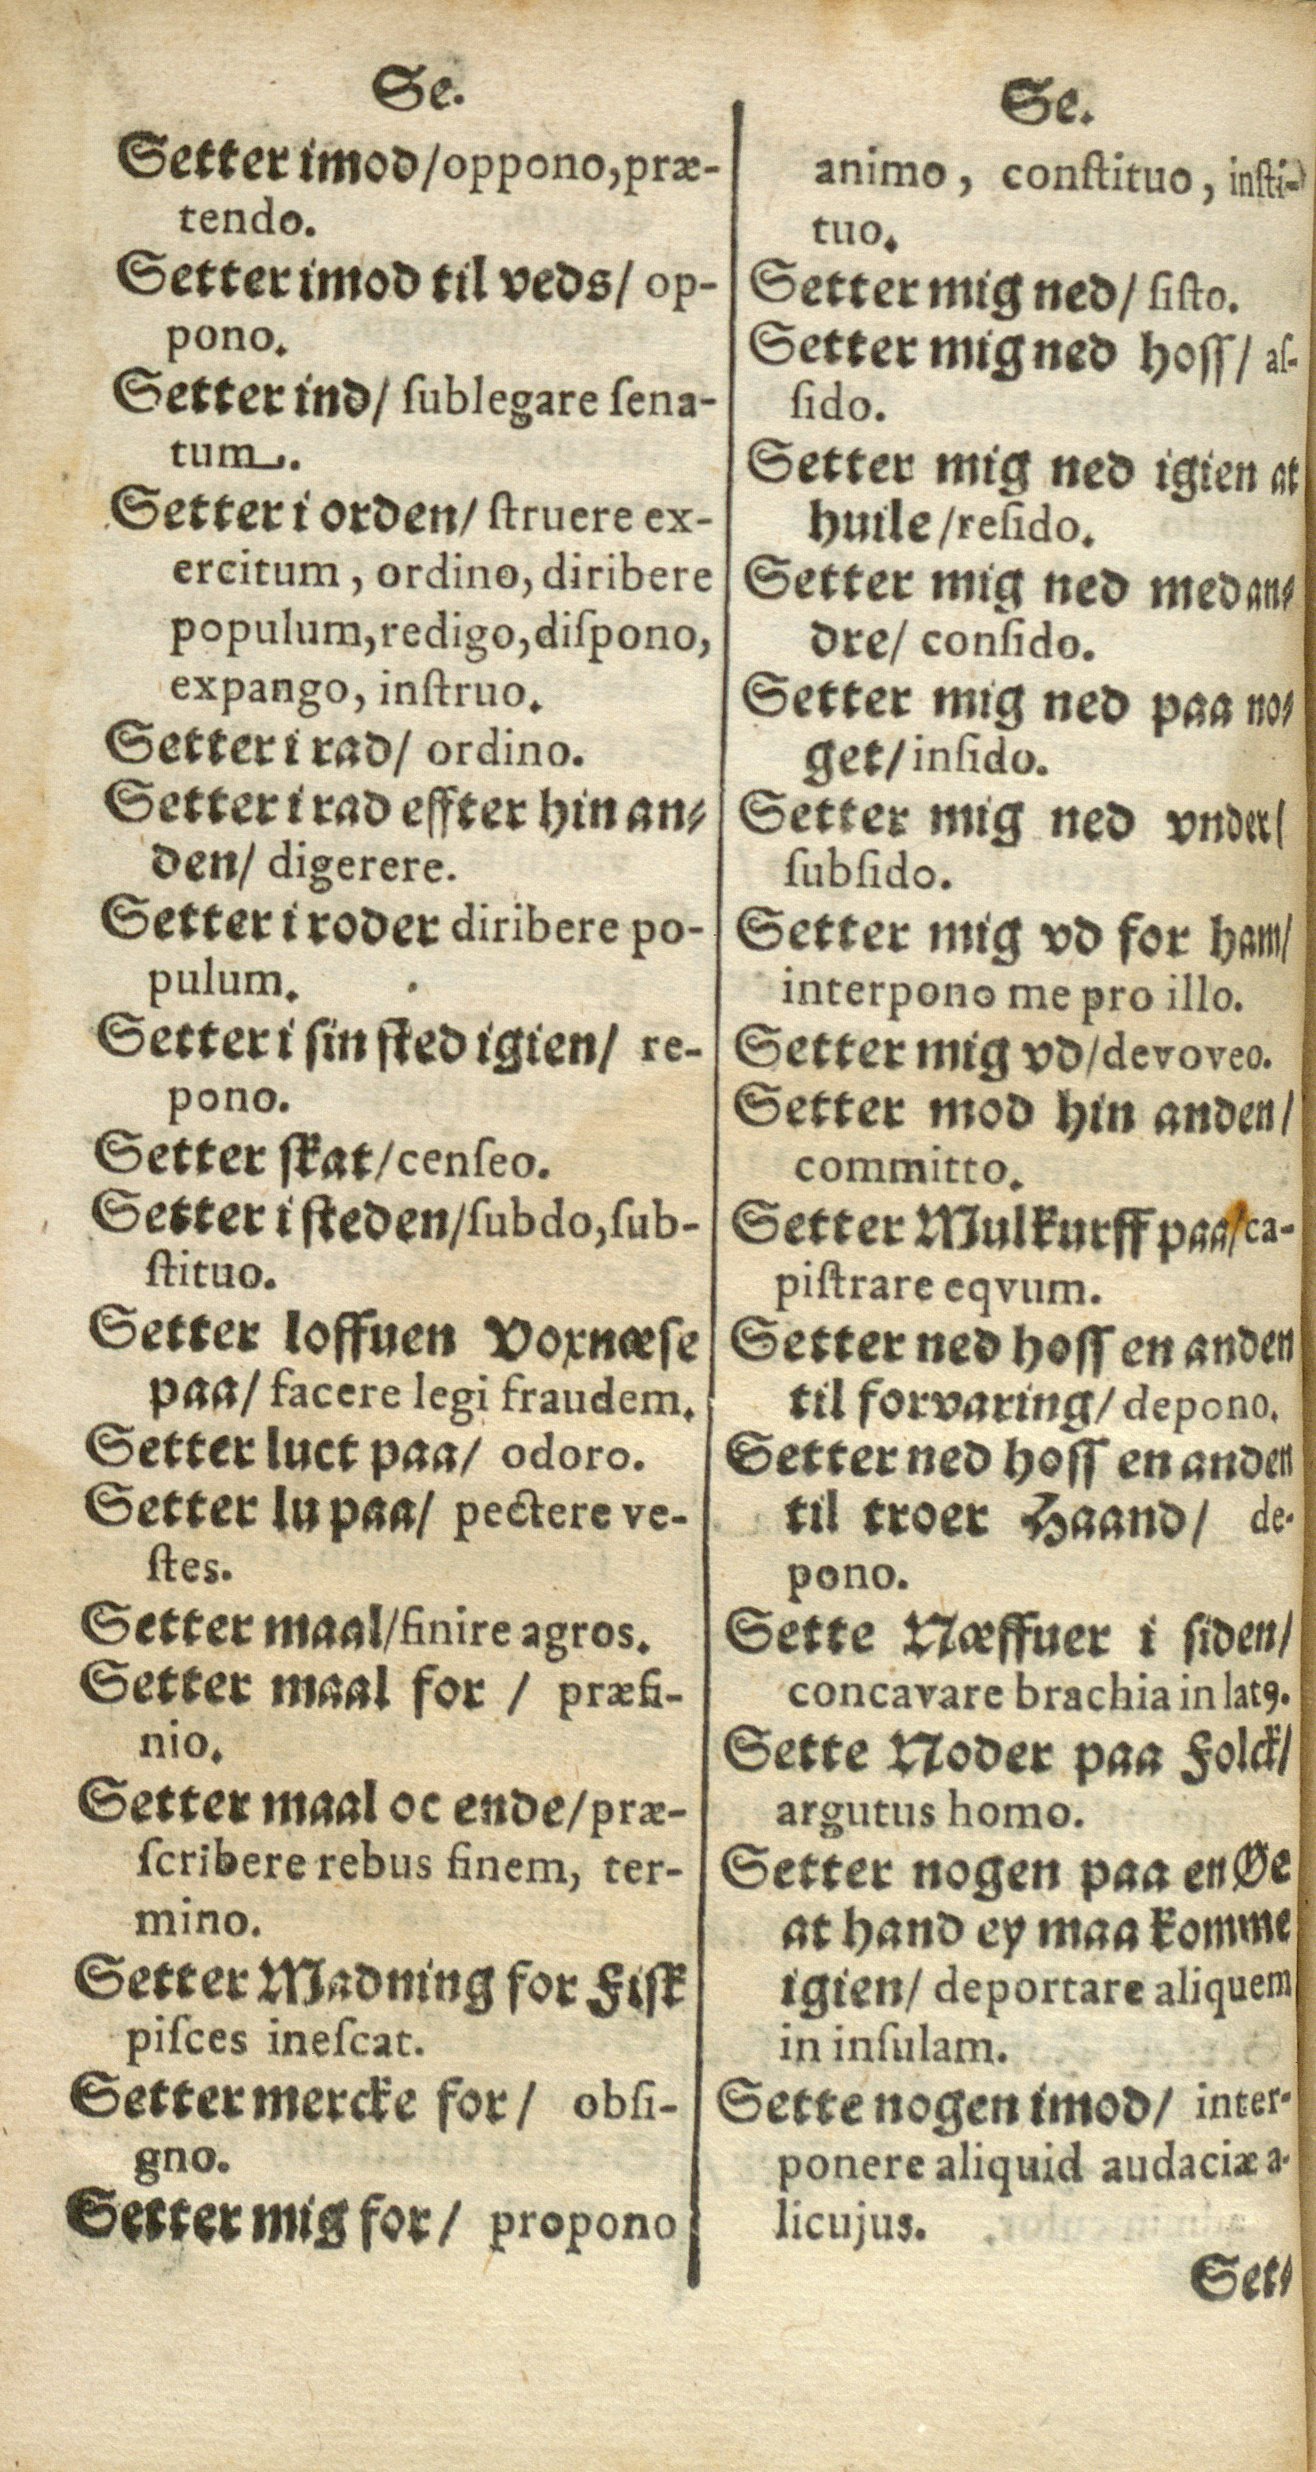 Se.
Setter imod/oppono,præ-
tendo.
Setter imod til veds/ op-
pono.
Setter ind/ ſublegare ſena-
tum.
Setter i orden/ ſtruere ex-
ercitum, ordino, diribere
populum,redigo,diſpono,
expango, inſtruo.
Setter i rad/ ordino.
Setter i rad effter hin an⸗
den/ digerere.
Setter i roder diribere po-
pulum.
Setter i ſin ſted igien/ re-
pono.
Setter ſkat/cenſeo.
Setter i ſteden/ſubdo,ſub-
ſtituo.
Setter loffuen Voxnæſe
paa/ facere legi fraudem.
Setter luct paa/ odoro.
Setter lu paa/ pectere ve-
ſtes.
Setter maal/finire agros.
Setter maal for / præfi-
nio.
Setter maal oc ende/præ-
ſcribere rebus finem, ter-
mino.
Setter Madning for Fiſk
piſces ineſcat.
Setter mercke for/ obſi-
gno.
Setter mig for/ propono
Se.
animo, conſtituo, inſti-
tuo.
Setter mig ned/ ſiſto.
Setter mig ned hoſſ/ aſ-
ſido.
Setter mig ned igien at
huile/reſido.
Setter mig ned med an⸗
dre/ conſido.
Setter mig ned paa no⸗
get/ inſido.
Setter mig ned vnder/
ſubſido.
Setter mig vd for ham/
interpono me pro illo.
Setter mig vd/devoveo.
Setter mod hin anden/
committo.
Setter Mulkurff paa/ca-
piſtrare eqvum.
Setter ned hoſſ en anden
til forvaring/ depono.
Setter ned hoſſ en anden
til troer Haand/ de-
pono.
Sette Næffuer i ſiden/
concavare brachia in latꝯ.
Sette Noder paa Folck/
argutus homo.
Setter nogen paa en Øe
at hand ey maa komme
igien/ deportare aliquem
in inſulam.
Sette nogen imod/ inter-
ponere aliquid audaciæ a-
licujus.
Set⸗